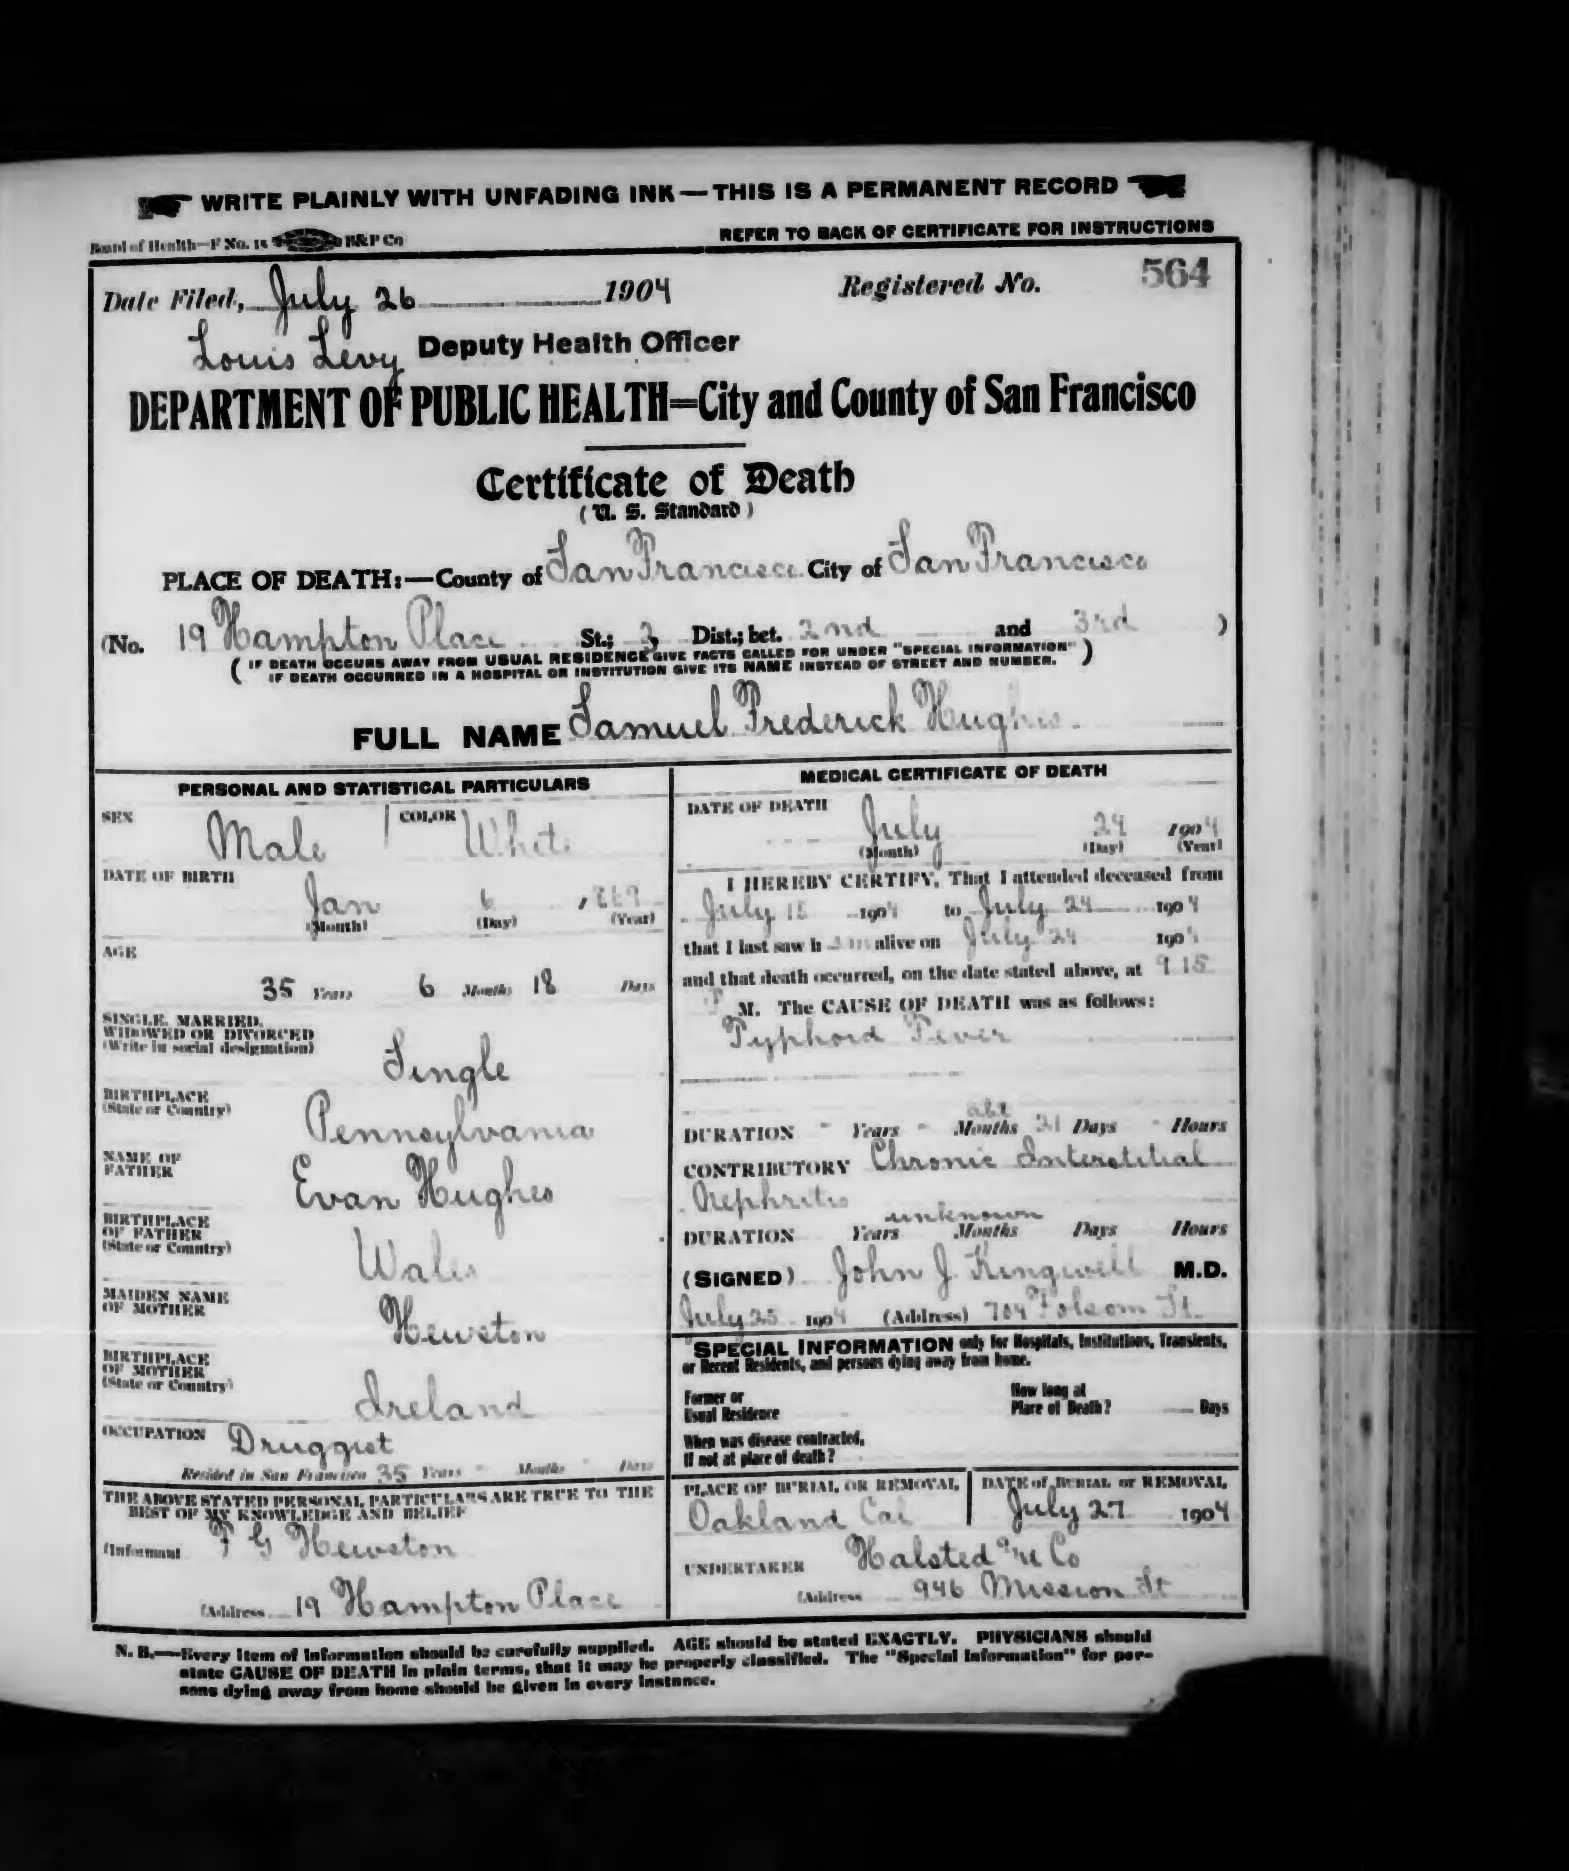 WRITE PLAINLY WITH UNFADING INK — THIS IS A PERMANENT RECORD
Board of Health—F No. 15 B&P Co
REFER TO BACK OF CERTIFICATE FOR INSTRUCTIONS
Date Filed, July 26 1904 Registered No. 564
Louis Levy Deputy Health Officer
DEPARTMENT OF PUBLIC HEALTH=City and County of San Francisco
Certificate of Death
( U. S. Standard )
PLACE OF DEATH:—County of San Francisco City of San Francisco
(No. 19 Hampton Place St.; 3 Dist.; bet. 2nd and 3rd )
( IF DEATH OCCURS AWAY FROM USUAL RESIDENCE GIVE FACTS CALLED FOR UNDER "SPECIAL INFORMATION" )
IF DEATH OCCURRED IN A HOSPITAL OR INSTITUTION GIVE ITS NAME INSTEAD OF STREET AND NUMBER.
FULL NAME Samuel Frederick Hughes
PERSONAL AND STATISTICAL PARTICULARS
SEX Male COLOR White
DATE OF BIRTH
Jan 6 1869
(Month) (Day) (Year)
AGE
35 Years 6 Months 18 Days
SINGLE, MARRIED,
WIDOWED OR DIVORCED
(Write in social designation)
Single
BIRTHPLACE
(State or Country)
Pennsylvania
NAME OF
FATHER
Evan Hughes
BIRTHPLACE
OF FATHER
(State or Country)
Wales
MAIDEN NAME
OF MOTHER
Hewston
BIRTHPLACE
OF MOTHER
(State or Country)
Ireland
OCCUPATION Druggist
Resided in San Francisco 35 Years - Months - Days
THE ABOVE STATED PERSONAL PARTICULARS ARE TRUE TO THE
BEST OF MY KNOWLEDGE AND BELIEF
(Informant F G Hewston
(Address 19 Hampton Place
MEDICAL CERTIFICATE OF DEATH
DATE OF DEATH
July 24 1904
(Month) (Day) (Year)
I HEREBY CERTIFY, That I attended deceased from
July 15 1904 to July 24 1904
that I last saw him alive on July 24 1904
and that death occurred, on the date stated above, at 9 15
P M. The CAUSE OF DEATH was as follows:
Typhoid Fever
abt
DURATION - Years - Months 21 Days - Hours
CONTRIBUTORY Chronic Interstitial
Nephritis
unknown
DURATION Years Months Days Hours
(SIGNED) John J. Kingwell M.D.
July 25 1904 (Address) 704 Folsom St.
SPECIAL INFORMATION only for Hospitals, Institutions, Transients,
or Recent Residents, and persons dying away from home.
Former or
Usual Residence
How long at
Place of Death? Days
When was disease contracted,
If not at place of death?
PLACE OF BURIAL OR REMOVAL
Oakland Cal
DATE of BURIAL or REMOVAL
July 27 1904
UNDERTAKER Halsted & Co
(Address 946 Mission St
N. B.—Every item of information should be carefully supplied. AGE should be stated EXACTLY. PHYSICIANS should
state CAUSE OF DEATH in plain terms, that it may be properly classified. The "Special Information" for per-
sons dying away from home should be given in every instance.